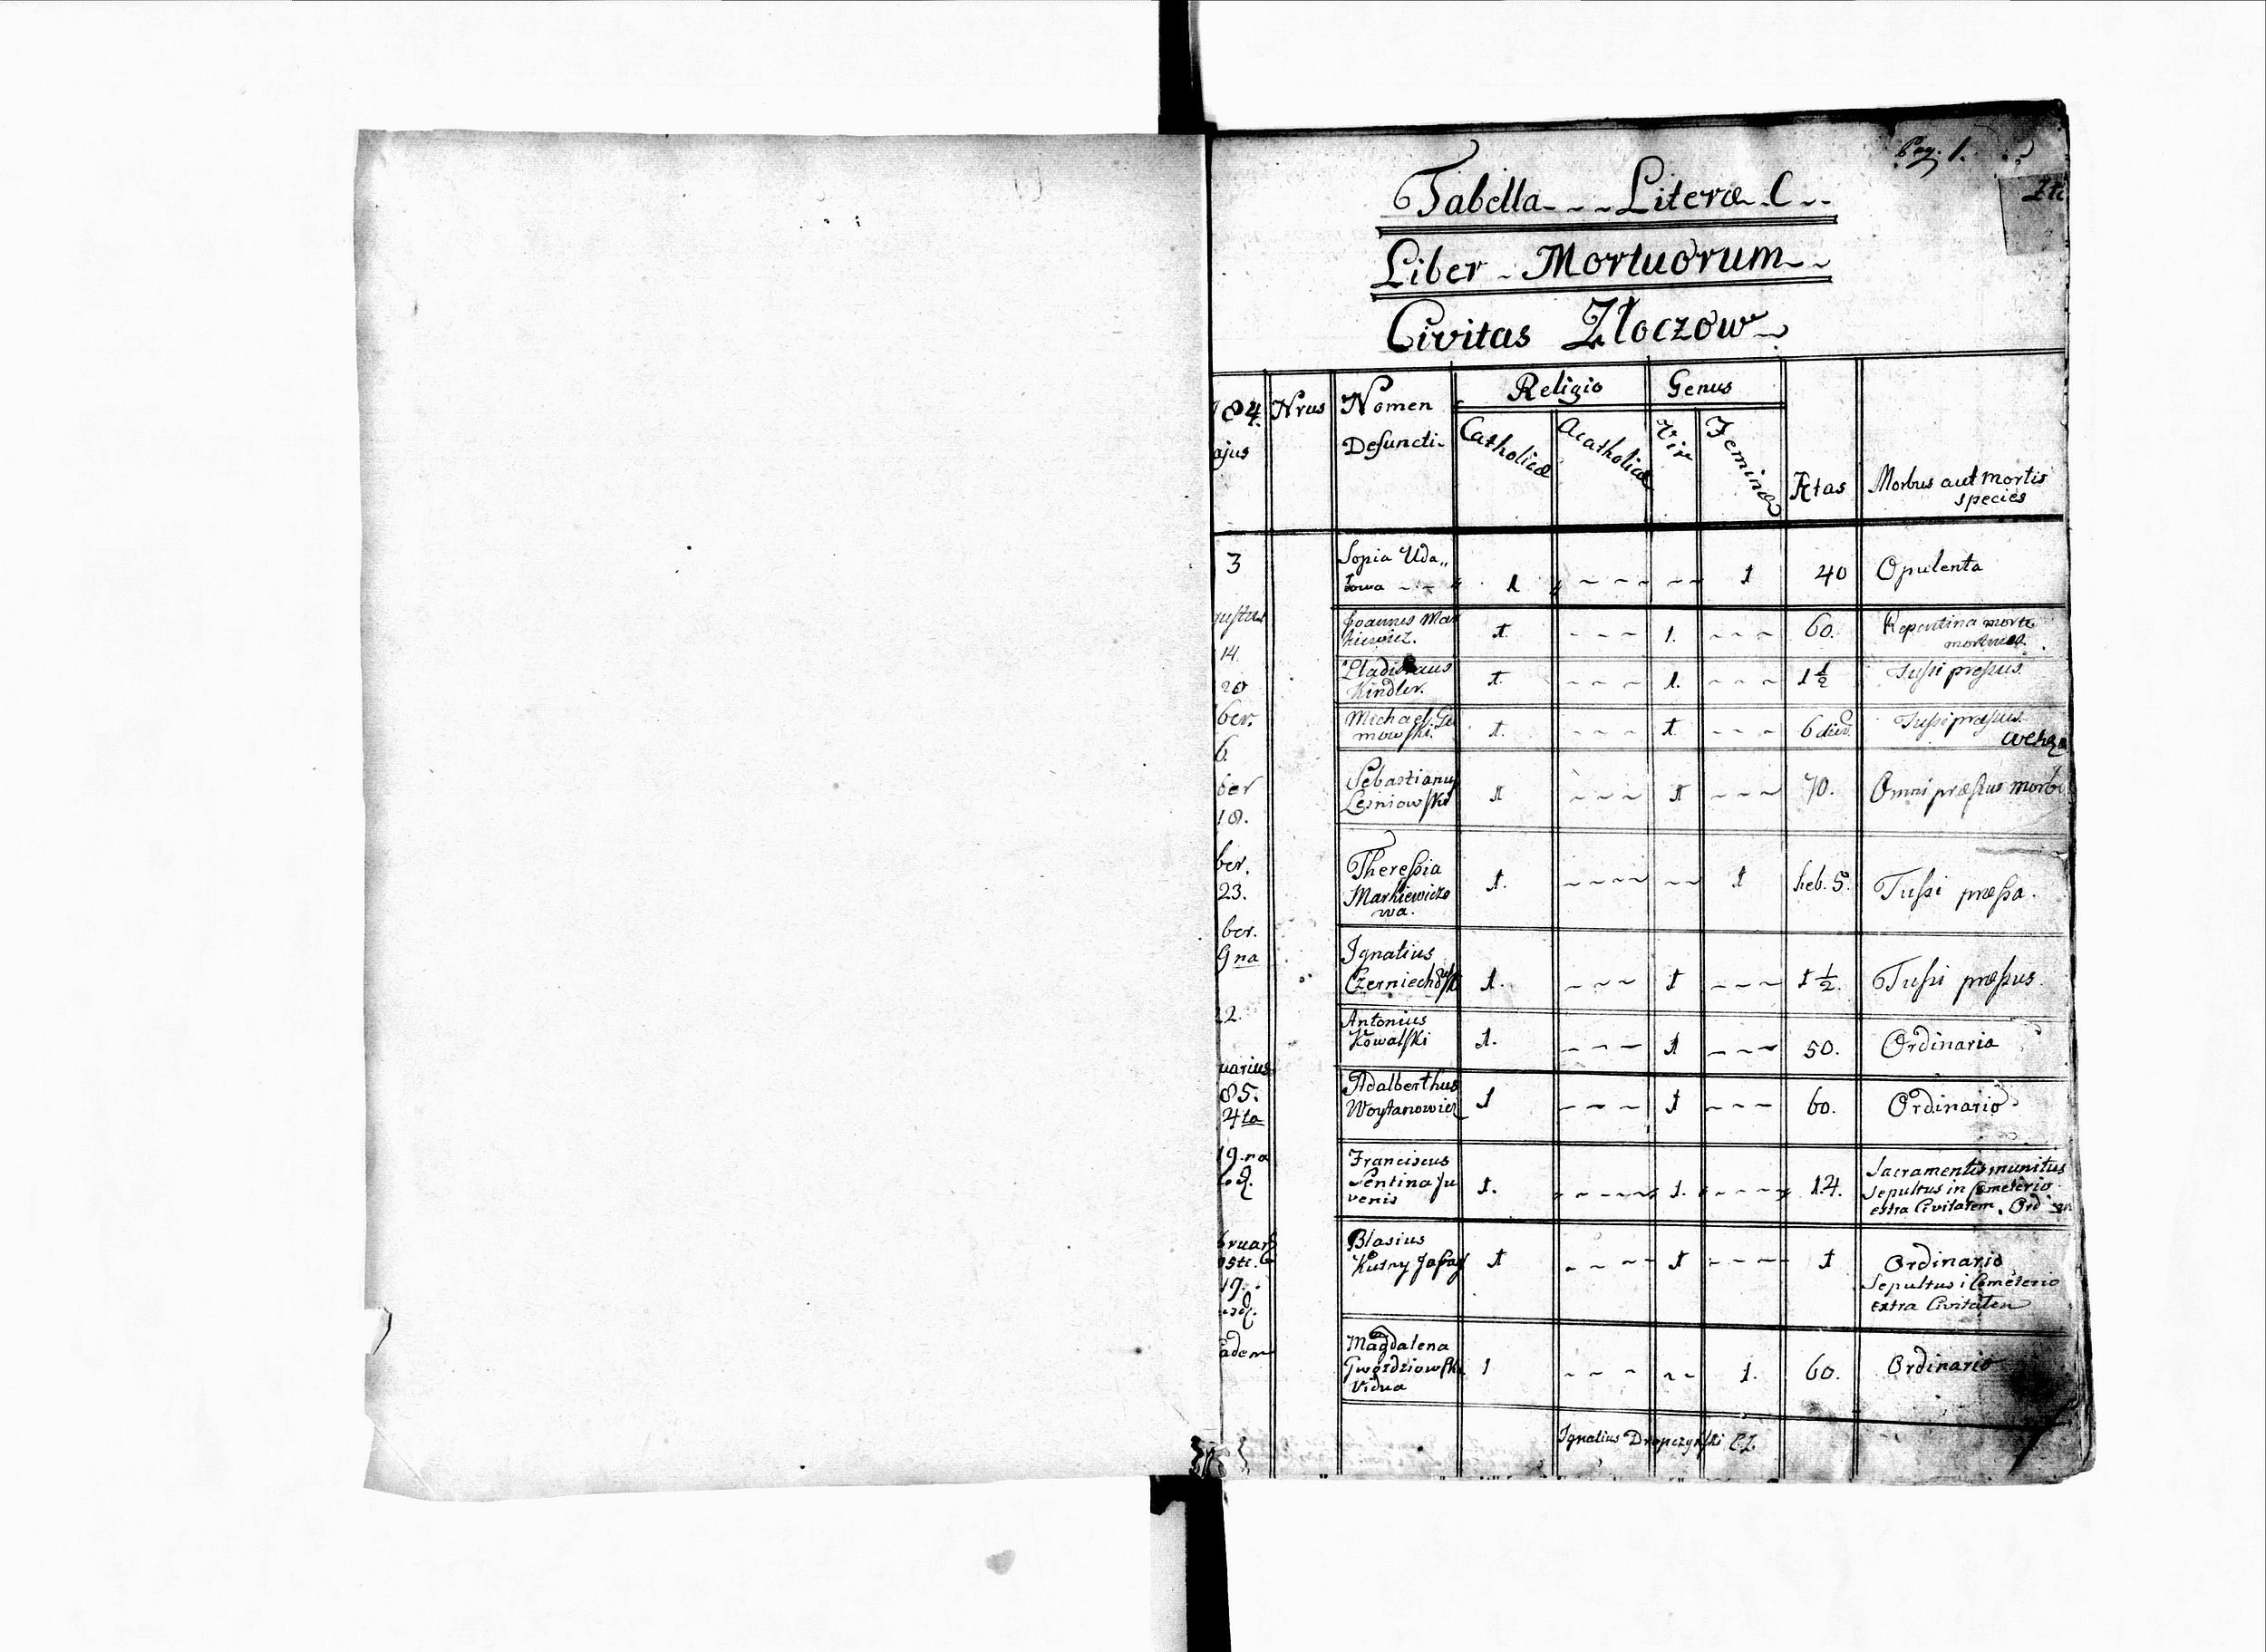 Pag. 1.
Tabella - - - Literæ - C - -
Liber - Mortuorum - -
Civitas Złoczow
Religio Genus
784. Nrus Nomen
ajus Defuncti Catholicæ Acatholicæ Vir Feminæ
Ætas Morbus aut mortis
species
3 Sopia Uda„
łowa - - - 1 - - - - - - 1 40 Opulenta
gustus Joannes Mar
kiewicz. 1. - - - 1. - - - 60. Repentina morte
mortuus.
14.
Kindler. 1. - - - 1. - - - 1 1/2 Tussi pressus.
20
ber. Michael Ge
mowski. 1. - - - 1. - - - 6 Tussi præssus.
6.
ber Sebastianus
Lesniowski 1 - - - 1 - - - 70. Omni præssus morbo
18.
ber. Theressia
23. Markiewiczo
wa. 1. - - - - - - 1 heb. 5. Tussi præssa.
ber. Ignatius
9na 1. - - - 1 - - - 1 1/2. Tussi præssus.
22. Antonius
Kowalski 1. - - - 1 - - - 50. Ordinaria
uarius Adalberthus
85. Woytanowicz 1 - - - 1 - - - 60. Ordinario
4ta
19.na Franciscus
Pentina Ju
venis 1. - - - - 1. - - - - 14. Sacramentis munitus
Sepultus in Cemeterio
extra Civitatem.
bruarj Blasius
Kutny 1 - - - 1 - - - 1 Ordinario
19. Sepultus i Cemeterio
extra Civitaten
adem Magdalena
Gwozdziowska
Vidua 1 - - - - - 1. 60. Ordinario
Ignatius Dropczynski C.Z.